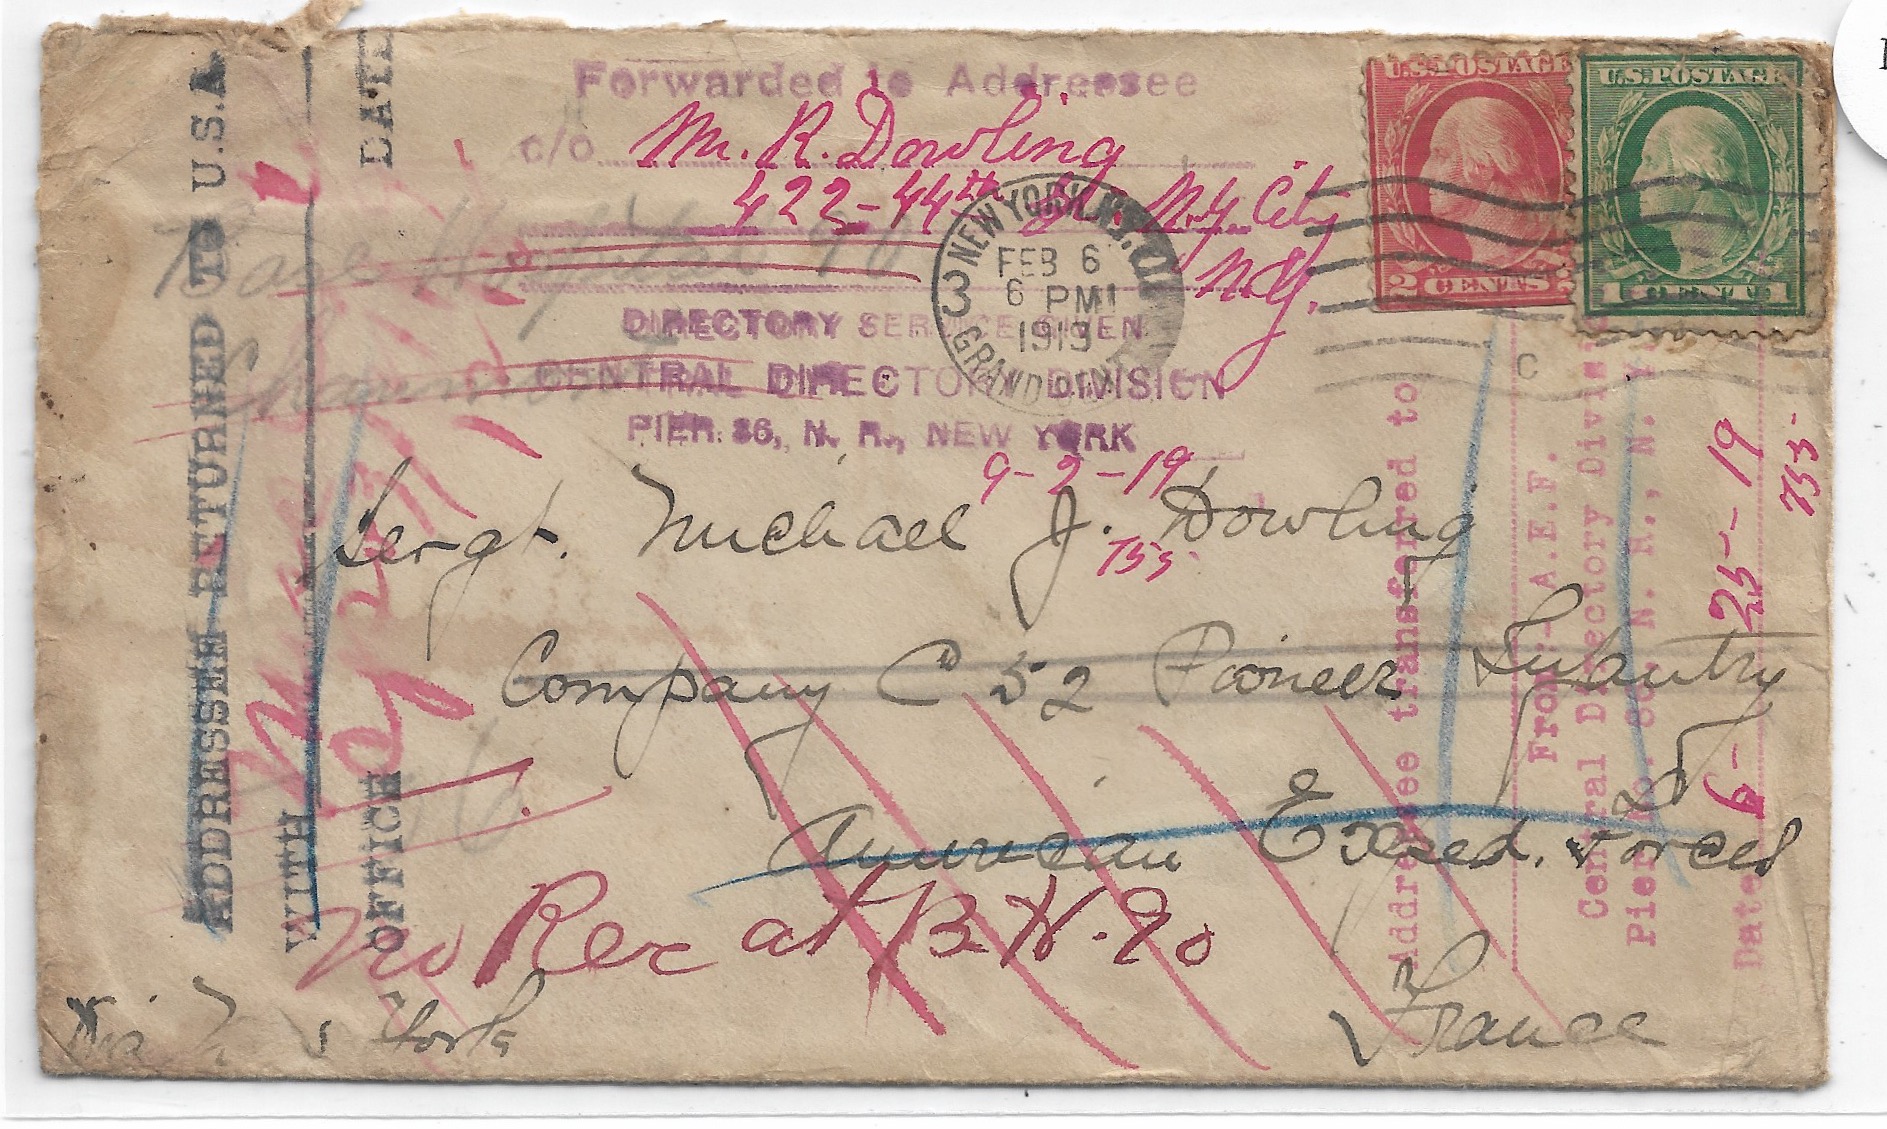 Forwarded to Addressee
c/o Mr. R. Dowling
422-44th St. N.Y. City
N.Y.
DIRECTORY SERVICE GIVEN
CENTRAL DIRECTORY DIVISION
PIER 86, N. R., NEW YORK
9-2-19
755
U.S. POSTAGE
2 CENTS 2
U.S. POSTAGE
1 CENT 1
NEW YORK, N.Y.
FEB 6
6 PM
1919
GRAND CEN
3
C
Base Hospital 90
Chaumont
Sergt. Michael J. Dowling
Company C 52 Pioneer Infantry
American Exped. Forces
France
Via New York
No Rec at B.H. 90
ADDRESSEE RETURNED TO U.S.A.
WITH
OFFICE
DATE
Addressee transferred to
From:- A.E.F.
Central Directory Divis
Pier No. 86, N. R., N. Y.
Date 6-25-19
755